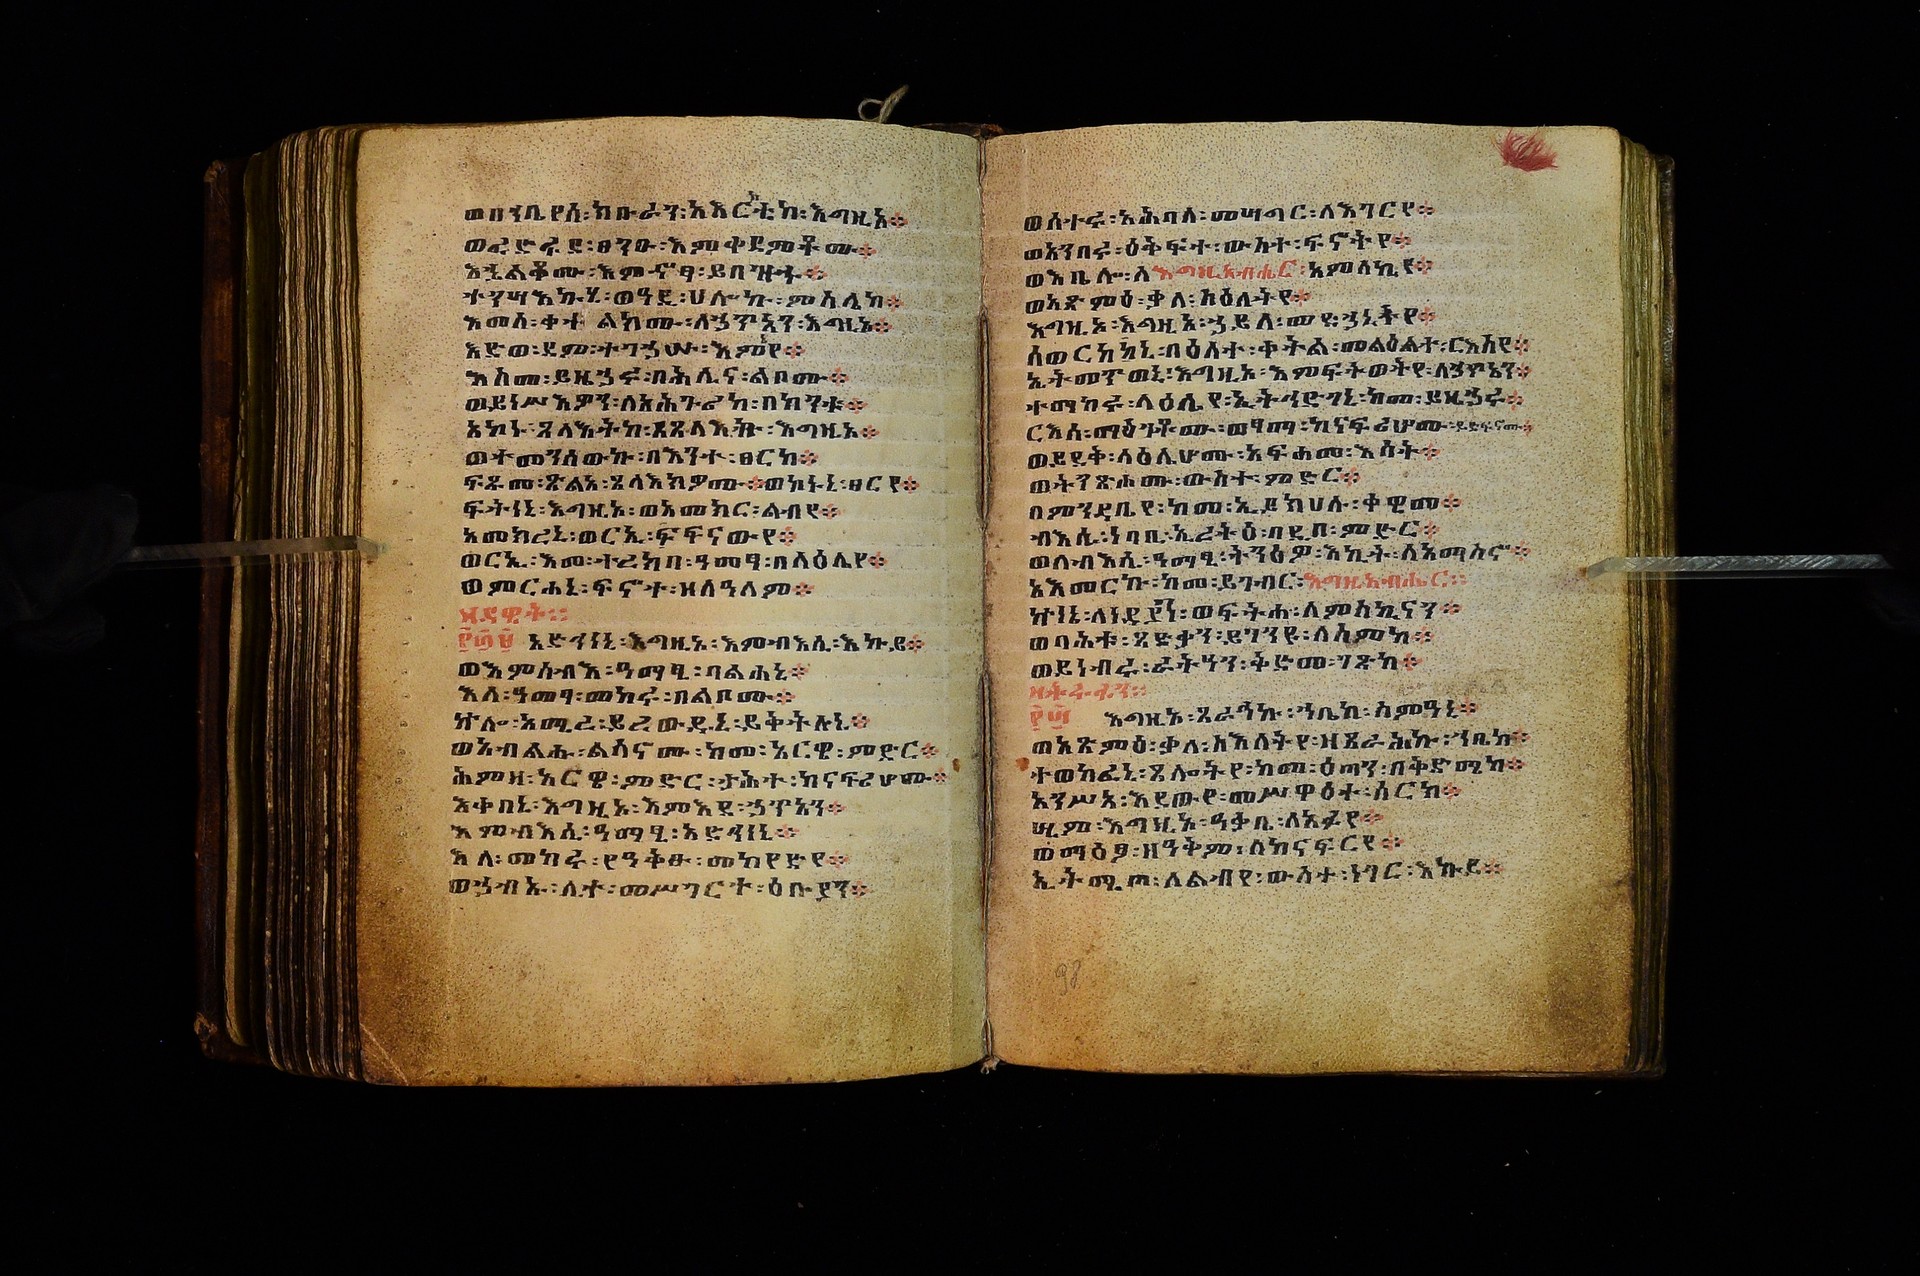 ወበኀቤየሰ፡ክቡራን፡አእርክቲከ፡እግዚአ፨
ወፈድፋደ፡ፀንዑ፡እምቀደምቶሙ፨
እኄልቆሙ፡እምኖፃ፡ይበዝኁ፨
ተንሣእኩሂ፡ወዓዲ፡ሀሎኩ፡ምስሌከ፨
እመሰ፡ቀተልኮሙ፡ለኃጥአን፡እግዚኦ፨
እድወ፡ደም፡ተገኃሡ፡እምኔየ፨
እስመ፡ይዜኃሩ፡በሕሊና፡ልቦሙ፨
ወይነሥእዎን፡ለአሕጉሪከ፡በከንቱ፨
አኮኑ፡ጸላእትከ፡ጸላእኩ፡እግዚአ፨
ወተመንሰውኩ፡በእንተ፡ፀርከ፨
ፍጹመ፡ጽልአ፡ጸላእክዎሙ፨ወኮኑኒ፡ፀርየ፨
ፍትነኒ፡እግዚአ፡ወአመክር፡ልብየ፨
አመክረኒ፡ወርኢ፡ፍናውየ፨
ወርኢ፡እመ፡ተረክበ፡ዓመፃ፡በላዕሌየ፨
ወምርሐኒ፡ፍኖተ፡ዘለዓለም፨
ዘዳዊት፡፡
፻፴፱ አድኅነኒ፡እግዚአ፡እምብእሲ፡እኩይ፨
ወእምብእሲ፡ዓማፂ፡ባልሐኒ፨
እለ፡ዓመፃ፡መከሩ፡በልቦሙ፨
ኵሎ፡አሚረ፡ይረውዱኒ፡ይቅትሉኒ፨
ወአብልሑ፡ልሳኖሙ፡ከመ፡አርዌ፡ምድር፨
ሕምዘ፡አርዌ፡ምድር፡ታሕተ፡ከናፍሪሆሙ፨
እቀበኒ፡እግዚአ፡እምእደ፡ኃጥአን፨
እምብእሲ፡ዓማፂ፡አድኅነኒ፨
እለ፡መከሩ፡የዓቅፁ፡መከየድየ፨
ወኃብኡ፡ሊተ፡መሥገርተ፡ዕቡያን፨
ወሰተሩ፡አሕባለ፡መሣግር፡ለእገርየ፨
ወአንበሩ፡ዕቅፍተ፡ውስተ፡ፍኖትየ፨
ወእቤሎ፡ለእግዚአብሔር፡አምላኪየ፨
ወአጽምዕ፡ቃለ፡ስዕለትየ፨
እግዚኦ፡እግዚኦ፡ኃይለ፡መድኃኒትየ፨
ሰውርከኒ፡በዕለተ፡ቀትል፡መልዕልተ፡ርእስየ፨
ኢትመጥወኒ፡እግዚአ፡እምፍትወትየ፡ለኃጥአን፨
ተማከሩ፡ላዕሌየ፡ኢትኅድገኒ፡ከመ፡ይዜኃሩ፨
ርእሰ፡ማዕገቶሙ፡ወፃማ፡ከናፍሪሆሙ፡ይድፍኖሙ፨
ወይደቅ፡ላዕሌሆሙ፡አፍሐመ፡እሳት፨
ወትንጽሖሙ፡ውስተ፡ምድር፨
በምንዳቤየ፡ከመ፡ኢይክሀሉ፡ቀዊመ፨
ብእሲ፡ነባቢ፡ኢረትዕ፡በዲበ፡ምድር፨
ወለብእሲ፡ዓማፂ፡ትንዕዎ፡እኪት፡ለአማስኖ፨
አእመርኩ፡ከመ፡ይገብር፡እግዚአብሔር፡፡
ኵነኔ፡ለነዳያን፡ወፍትሐ፡ለምስኪናን፨
ወባሕቱ፡ጻድቃን፡ይገንዩ፡ለስምከ፨
ወይነብሩ፡ራትዓን፡ቅድመ፡ገጽከ፨
ዘዳዊት፡፡
፻፵ እግዚኦ፡ጸራኅኩ፡ኀቤከ፡ስምዓኒ፨
ወአጽምዕ፡ቃለ፡ስእለትየ፡ዘጸራሕኩ፡ኀቤከ፨
ተወከፈኒ፡ጸሎትየ፡ከመ፡ዕጣን፡በቅድሜከ፨
አንሥኦ፡እደውየ፡መሥዋዕተ፡ሰርክ፨
ሢም፡እግዚኦ፡ዓቃቤ፡ለአፉየ፨
ወማዕፆ፡ዘዓቅም፡ለከናፍርየ፨
ኢትሚጦ፡ለልብየ፡ውስተ፡ነገር፡እኩይ፨
98